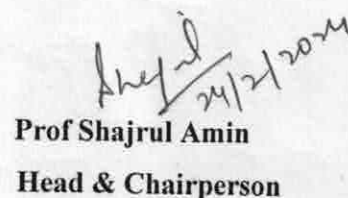 Shajrul
24/2/2024
Prof Shajrul Amin
Head & Chairperson